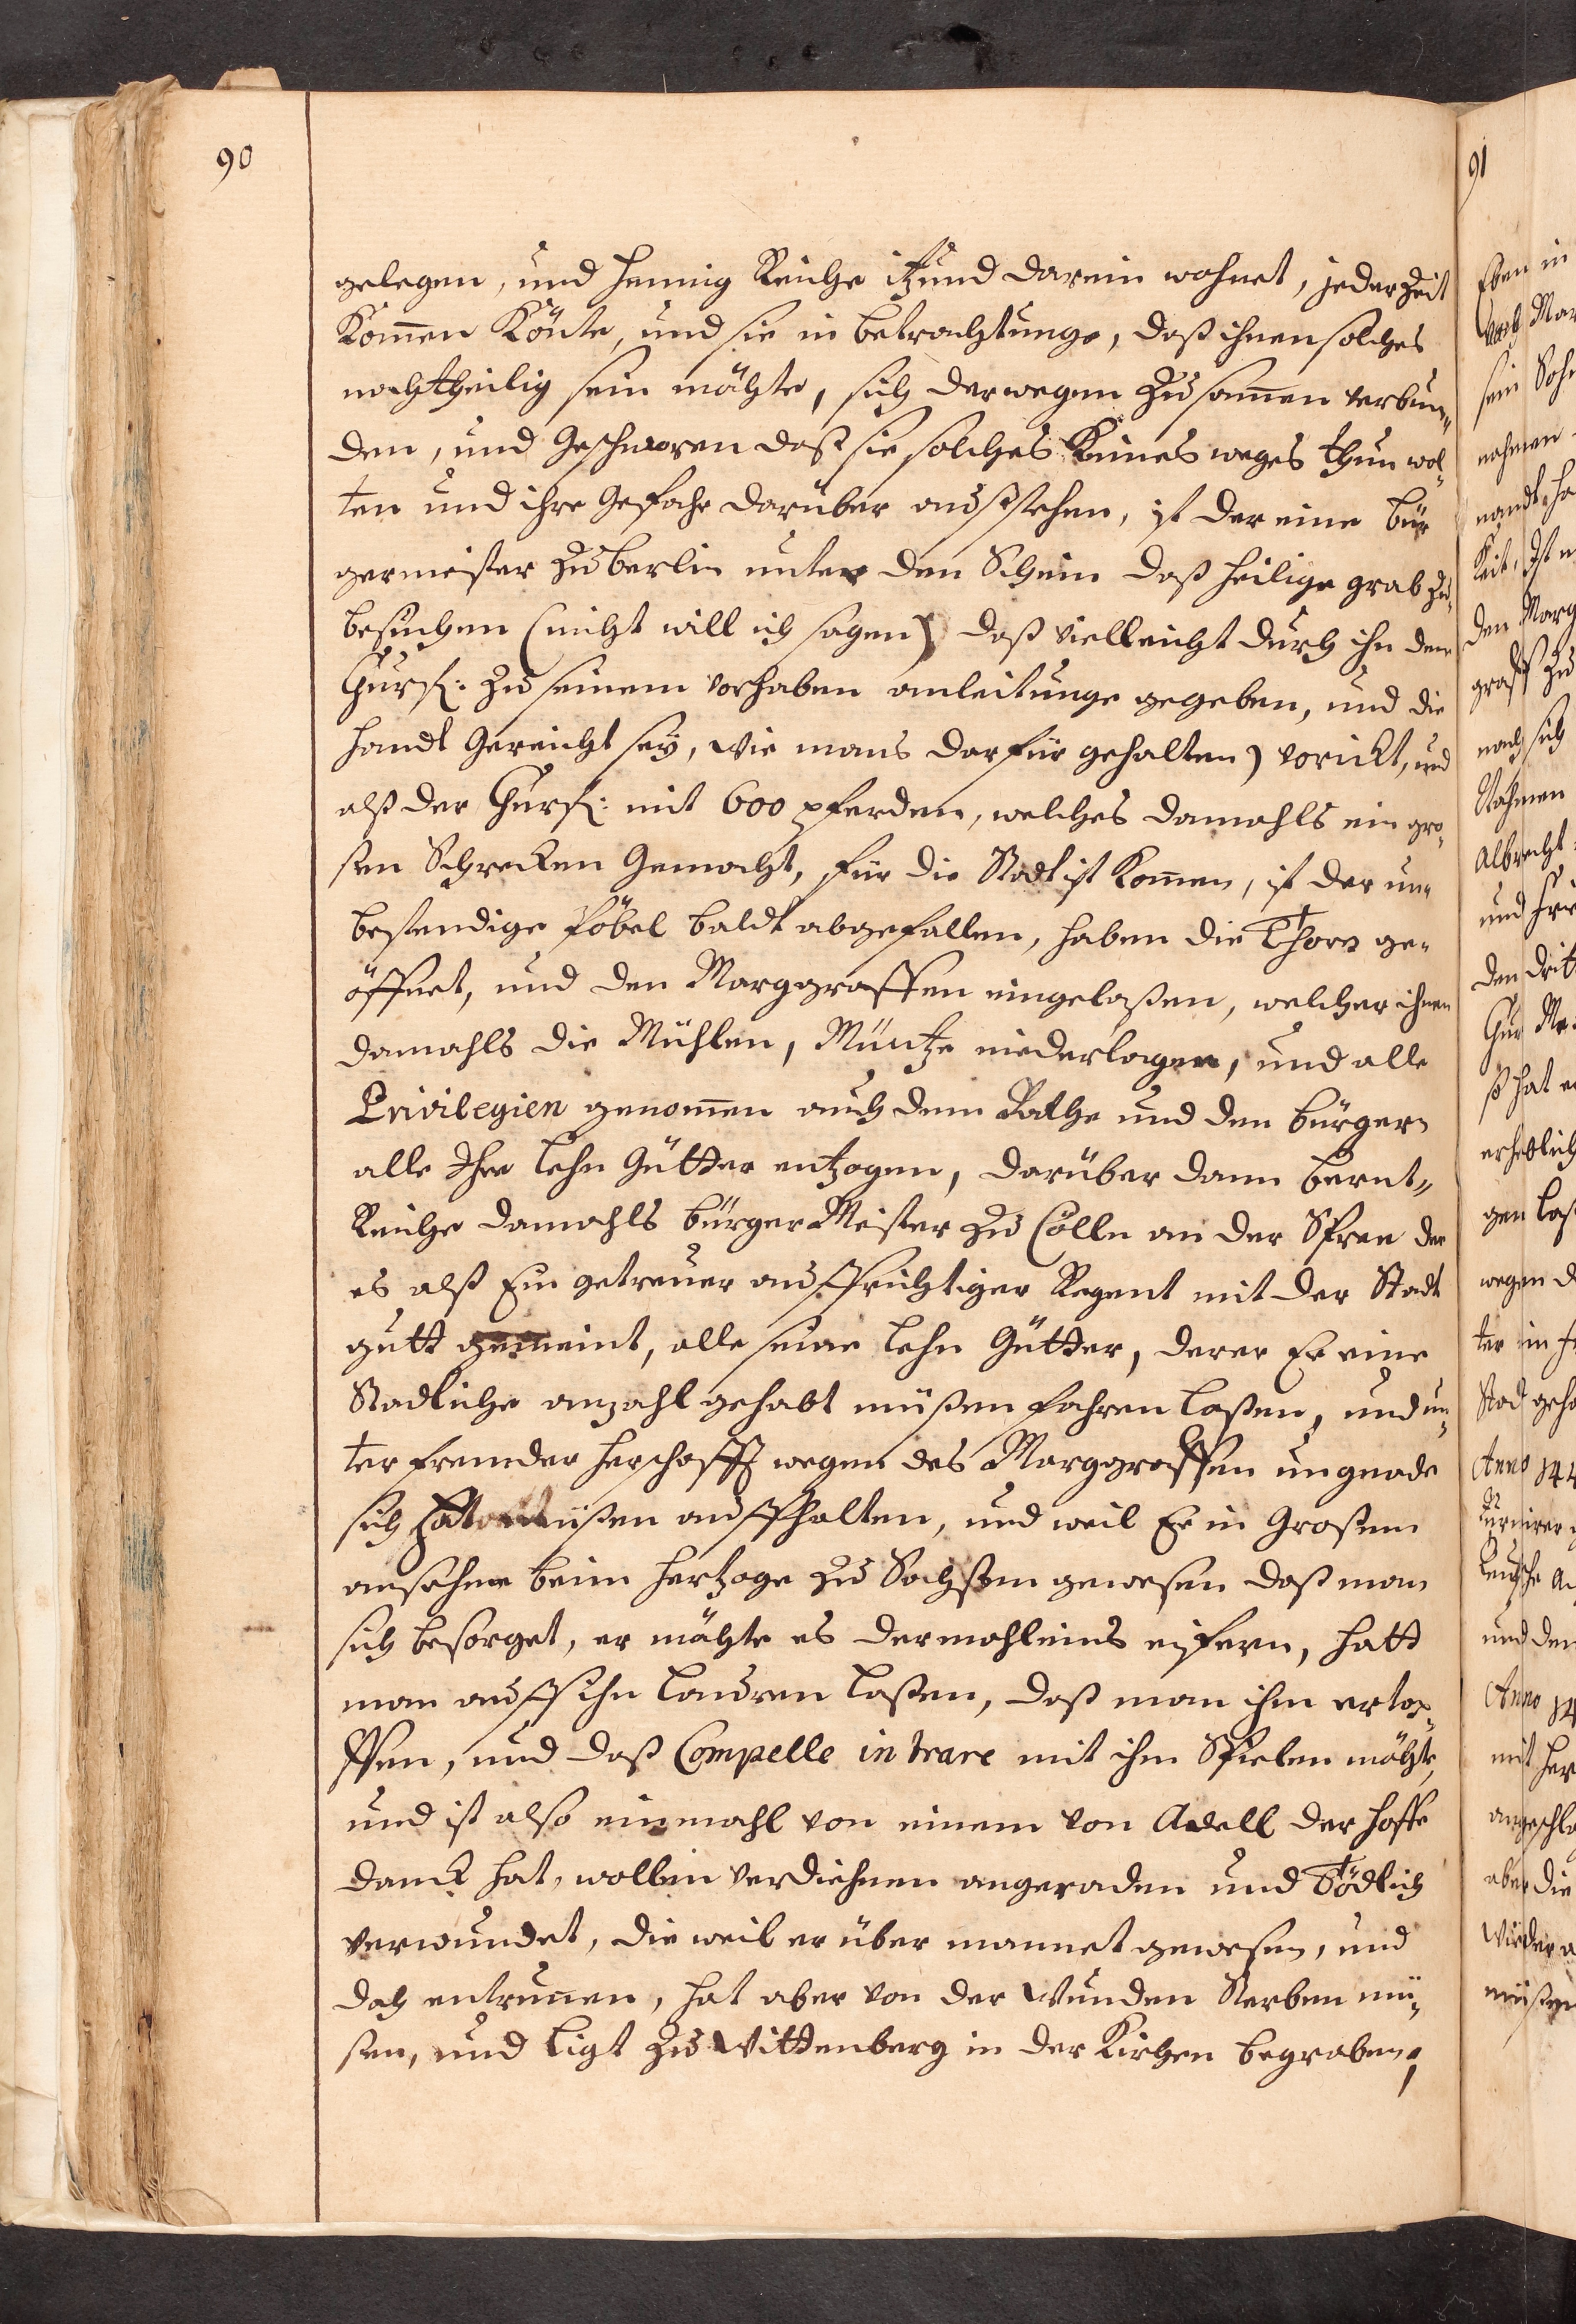 90
gelegen, und Hennig Reiche itzund darein wohnet, jeder Zeit
Kom̄en Könte, und sie in betrachtunge, daß ihnen solches
nachtheilig sein möchte, sich derwegen Zusam̄en verbun„
den, und Geschworen daß sie solches Keines weges thun wol„
ten und ihre Gefahr darüber außstehen, ist der eine bür
germeister Zu berlin unter den Schein daß heilige grab Zu„
besuchen (nicht will ich sagen) daß vielleicht durch ihn dem
Churf: Zu seinem vorhaben anleitunge gegeben, und die
handt Gereicht sey, wie mans darfür gehalten) vorickt, und
alß der Churf: mit 600 pferden, welches damahls ein gro„
sen Schrecken Gemacht, für die Stadt ist Kom̄en, ist der un„
bestendige Pöbel baldt abgefallen, haben die Thore ge„
öffnet, und den Marggraffen eingelaßen, welcher ihnen
damahls die Mühlen, Müntze niederlagen, und alle
Privilegien genom̄en auch dem Rathe und den bürgern
alle Ihre Lehn Gütter entzogen, darüber dann bernt„
Reiche damahls bürger Meister Zu Cölln an der Spree der
es alß Ein getreuer auffrichtiger Regent mit der Stadt
gutt gemeint, alle seine Lehn Gütter, derer Er eine
Stadliche anzahl gehabt müßen fahren laßen, und un„
ter fremder herschafft wegen des Marggraffen ungnade
sich hat müßen auffhalten, und weil Er in Großem
ansehen beim hertzoge Zu Sachßen gewesen daß man
sich besorget, er möchte es dermahleins eifern, hatt
man auff ihn lauren laßen, daß man ihm ertap„
pfen, und daß Compelle intrare mit ihm Spielen möchte,
und ist also einmahl von einem von Adell der hoffe
danck hat, wollen verdiehnen angeraden und Tödlich
verwundet, die weil er über mannet gewesen, und
doch entrun̄en, hat aber von der Wunden Sterben mü„
sen, und ligt Zu Wittenberg in der Kirchen begraben,
91
Eben in
nahmen
Nahmen
Albrecht
den drit
erheblich
gen laß
wegen d
Stad geh
Anno 144
und den
Anno 14
mit her
aber die
müßen